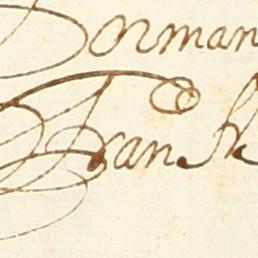 Dorman
Fran